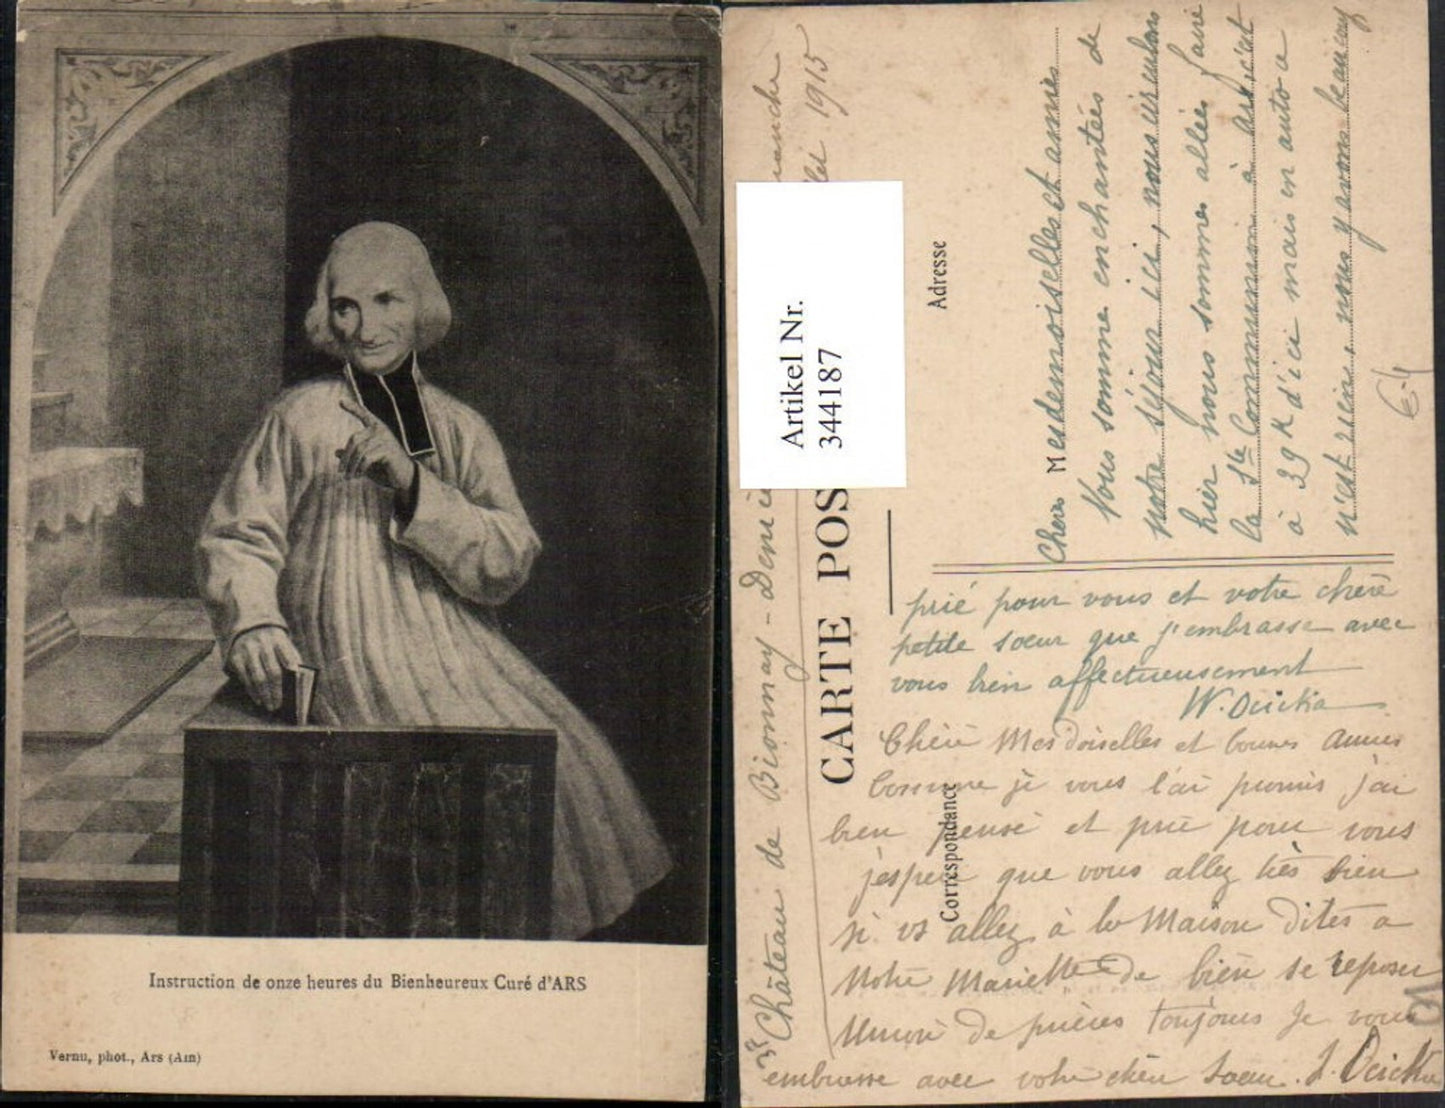 Instruction de onze heures du Bienheureux Curé d'ARS
Vernu, phot., Ars (Ain)
Artikel Nr.
344187
CARTE POS
Correspondance
Adresse
Château de Bionnay - Denicé
1915
Chères Mesdemoiselles et amies
Nous somme enchantées de
notre séjour ici, nous
hier nous sommes allées faire
la Ste Communion à ars, c'est
à 39 K d'ici mais en auto ce
n'est rien, nous y avons beaucoup
prié pour vous et votre chère
petite soeur que j'embrasse avec
vous bien affectueusement
W. Ocicka
Chère Mesdoiselles et bonnes Amies
Comme je vous l'ai promis j'ai
bien pensé et prié pour vous
j'espère que vous allez très bien
si vs allez à la Maison dites a
Notre Mariette de bien se reposer
de prières toujours Je vous
embrasse avec votre chère Soeur. J. Ocicka